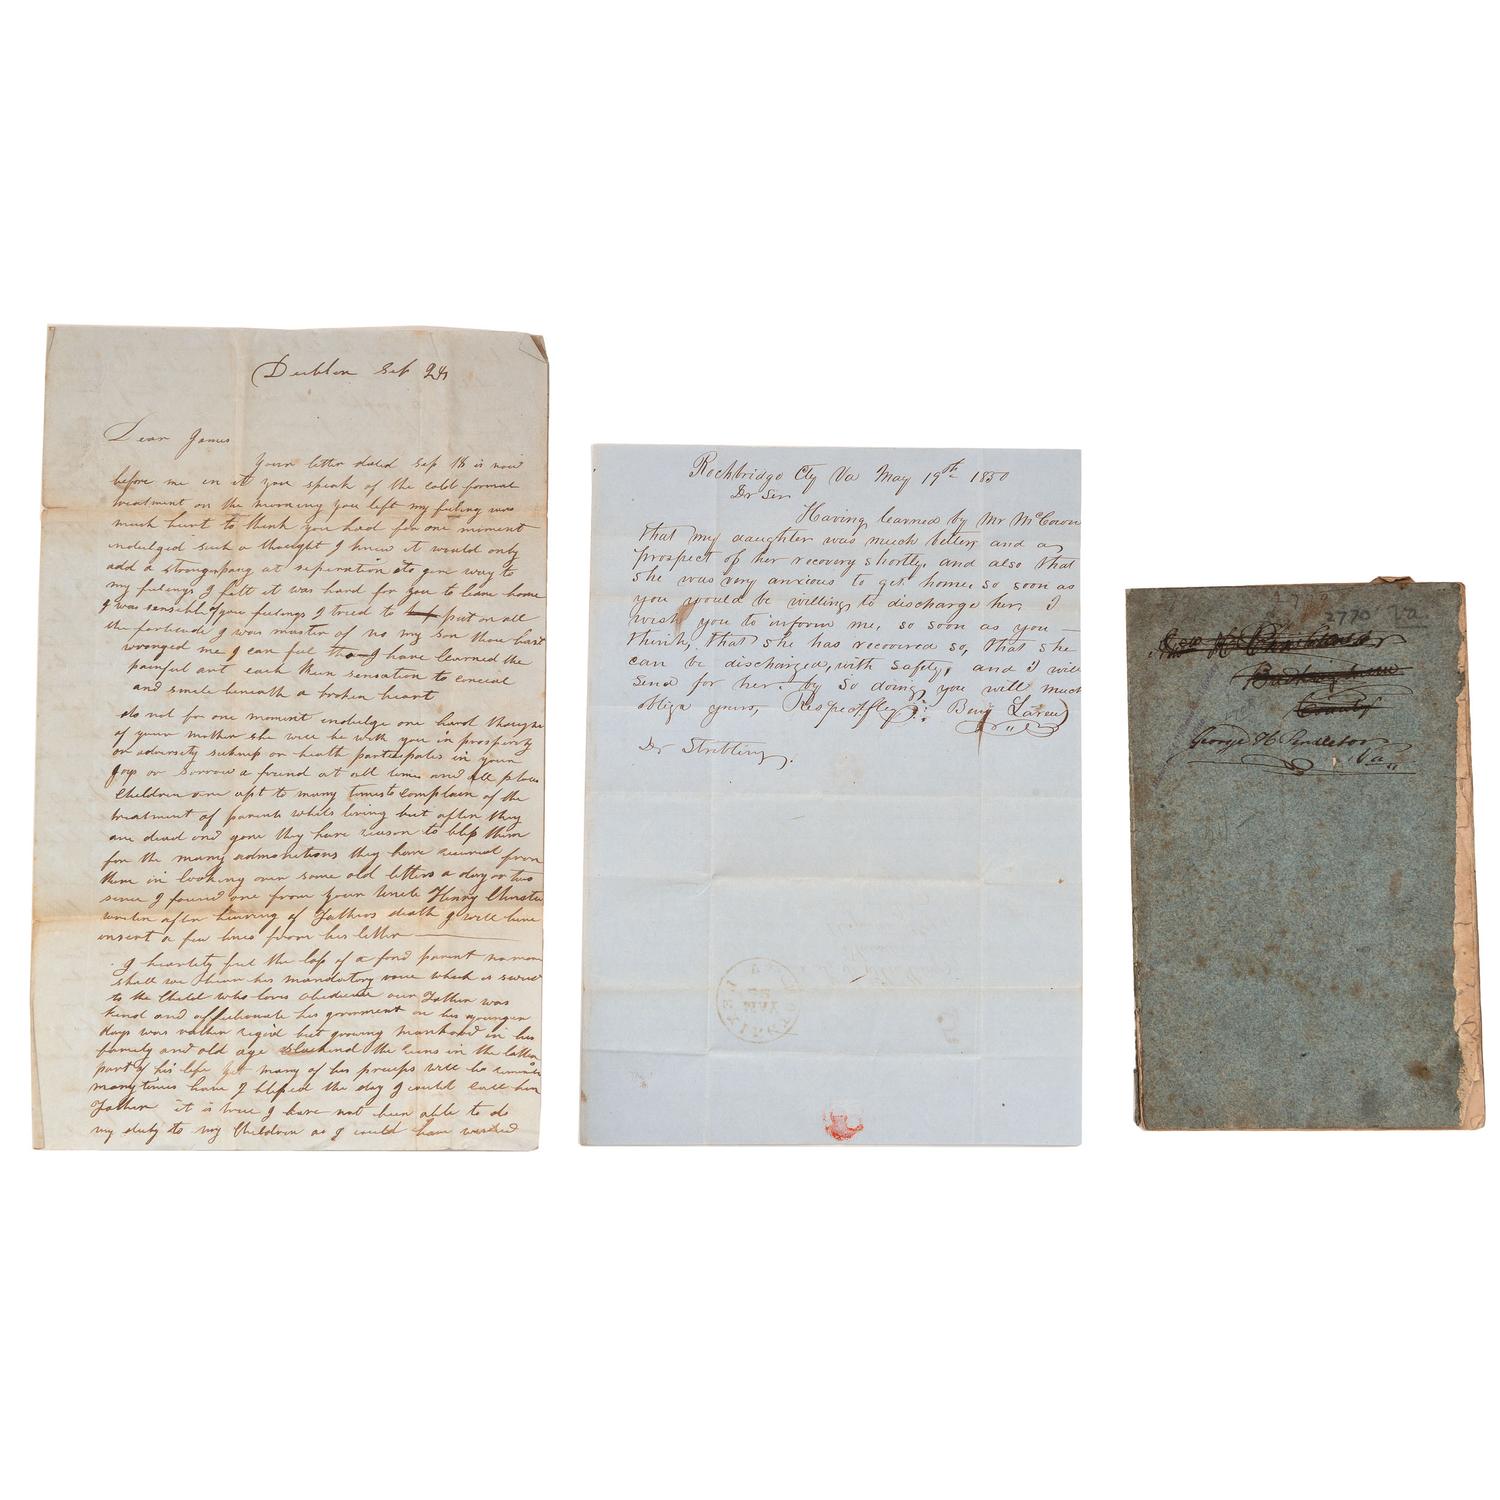 Dublin Sep 24
Dear James
Your letter dated Sep 18 is now
before me in it you speak of the cold formal
treatment on the morning you left my feeling was
much hurt to think you had for one moment
indulged such a thought I knew it would only
add a stronger pang at seperation to give way to
my feelings I felt it was hard for you to leave home
I was sensible of your feelings I tried to put on all
the fortitude I was master of no my son thou hast
wronged me I can feel tho I have learned the
painful art each keen sensation to conceal
and smile beneath a broken heart
do not for one moment indulge one hard thought
of your mother she will be with you in prosperity
or adversity sickness or health participates in your
joys or sorrow a friend at all times and all places
Children are apt to many times complain of the
treatment of parents whils living but after they
are dead and gone they have reason to bless them
for the many admonitions they have received from
them in looking over some old letters a day or two
since I found one from your Uncle Henry
written after hearing of Fathers death I will here
insert a few lines from his letter
I heartily feel the loss of a fond parent no more
shall we hear his mandatory voice which is sweet
to the Child who loves obedience our Father was
kind and affectionate his goverment on his younger
days was rather rigid but growing manhood in his
family and old age slackend the reins in the latter
part of his life yet many of his preceps will be
many times have I blessed the day I could call him
Father it is true I have not been able to do
my duty to my Children as I could have wished
Rockbridge Cty Va May 19th 1850
Dr Sir
Having learned by Mr McCown
that my daughter was much better, and a
prospect of her recovery shortly, and also that
she was very anxious to get home so soon as
you would be willing to discharge her, I
wish you to inform me, so soon as you
think, that she has recovered so, that she
can be discharged, with safety, and I will
send for her. by so doing you will much
oblige yours, Respectfley Benj Larew
Dr Stribling
MAY
2770
2770
County
George H Pendleton
Va